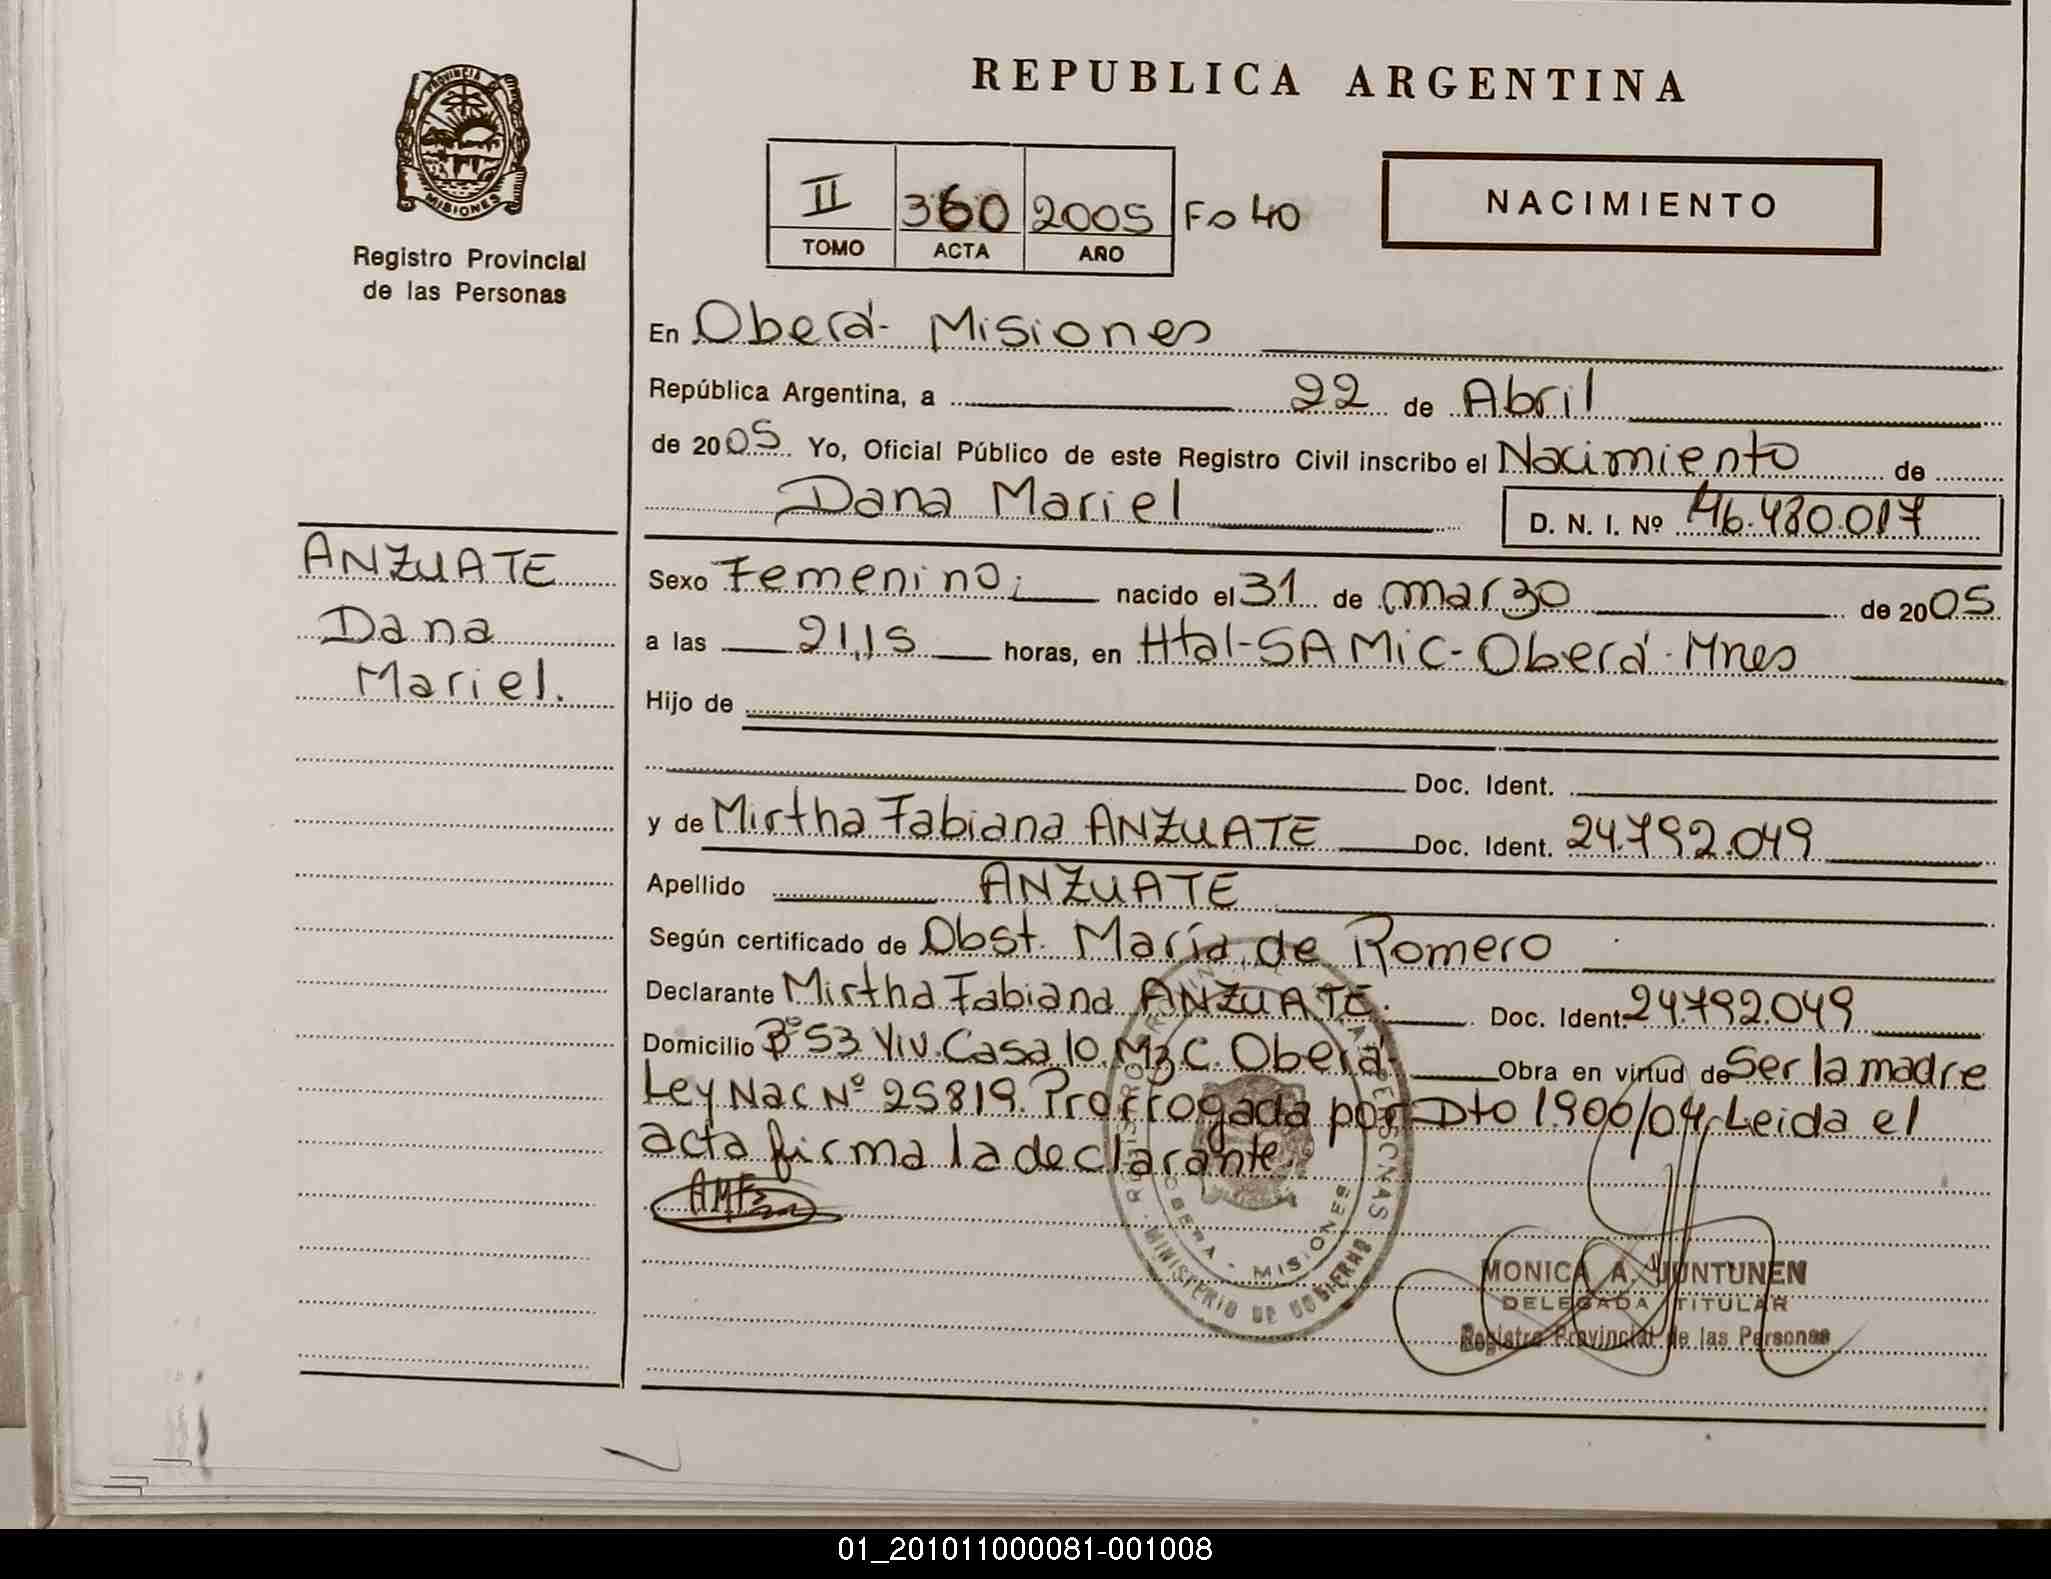 REPUBLICA ARGENTINA
PROVINCIA
MISIONES
Registro Provincial
de las Personas
II 360 2005 Fo 40
TOMO ACTA AÑO
NACIMIENTO
En Oberá - Misiones
República Argentina, a 22 de Abril
de 2005 Yo, Oficial Público de este Registro Civil inscribo el Nacimiento de
Dana Mariel D. N. I. Nº 46.480.017
ANZUATE
Dana
Mariel.
Sexo Femenino; nacido el 31 de marzo de 2005
a las 21,15 horas, en Htal-SAMIC-Oberá-Mnes
Hijo de
Doc. Ident.
y de Mirtha Fabiana ANZUATE Doc. Ident. 24.792.049
Apellido ANZUATE
Según certificado de Obst. María de Romero
Declarante Mirtha Fabiana ANZUATE. Doc. Ident. 24.792.049
Domicilio Bº 53 Viv. Casa 10. Mz C. Oberá- Obra en virtud de Ser la madre
Ley Nac Nº 25819. Prorrogada por Dto 1.900/04, Leida el
acta firma la declarante.
OBERA - MISIONES
MINISTERIO DE GOBIERNO
MONICA A. JUNTUNEN
DELEGADA TITULAR
Registro Provincial de las Personas
01_201011000081-001008